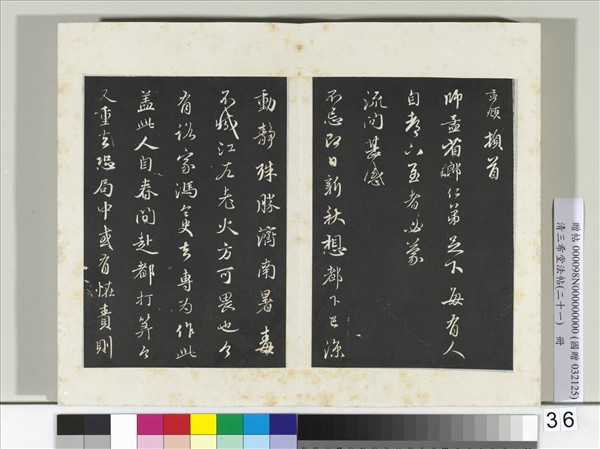 孟頫頓首
師孟省郎仁弟足下每有人
自都下至者必蒙
流問甚感
不忘即日新秋想都下已涼
動靜殊勝濟南暑毒
不減江左老火方可畏也今
有家馮令史去專為作此
蓋此人自春間赴都打算今
又重去恐局中或有怪責則
贈帖 000098N000000000 (國贈 032125)
清三希堂法帖(二十一) 冊
36